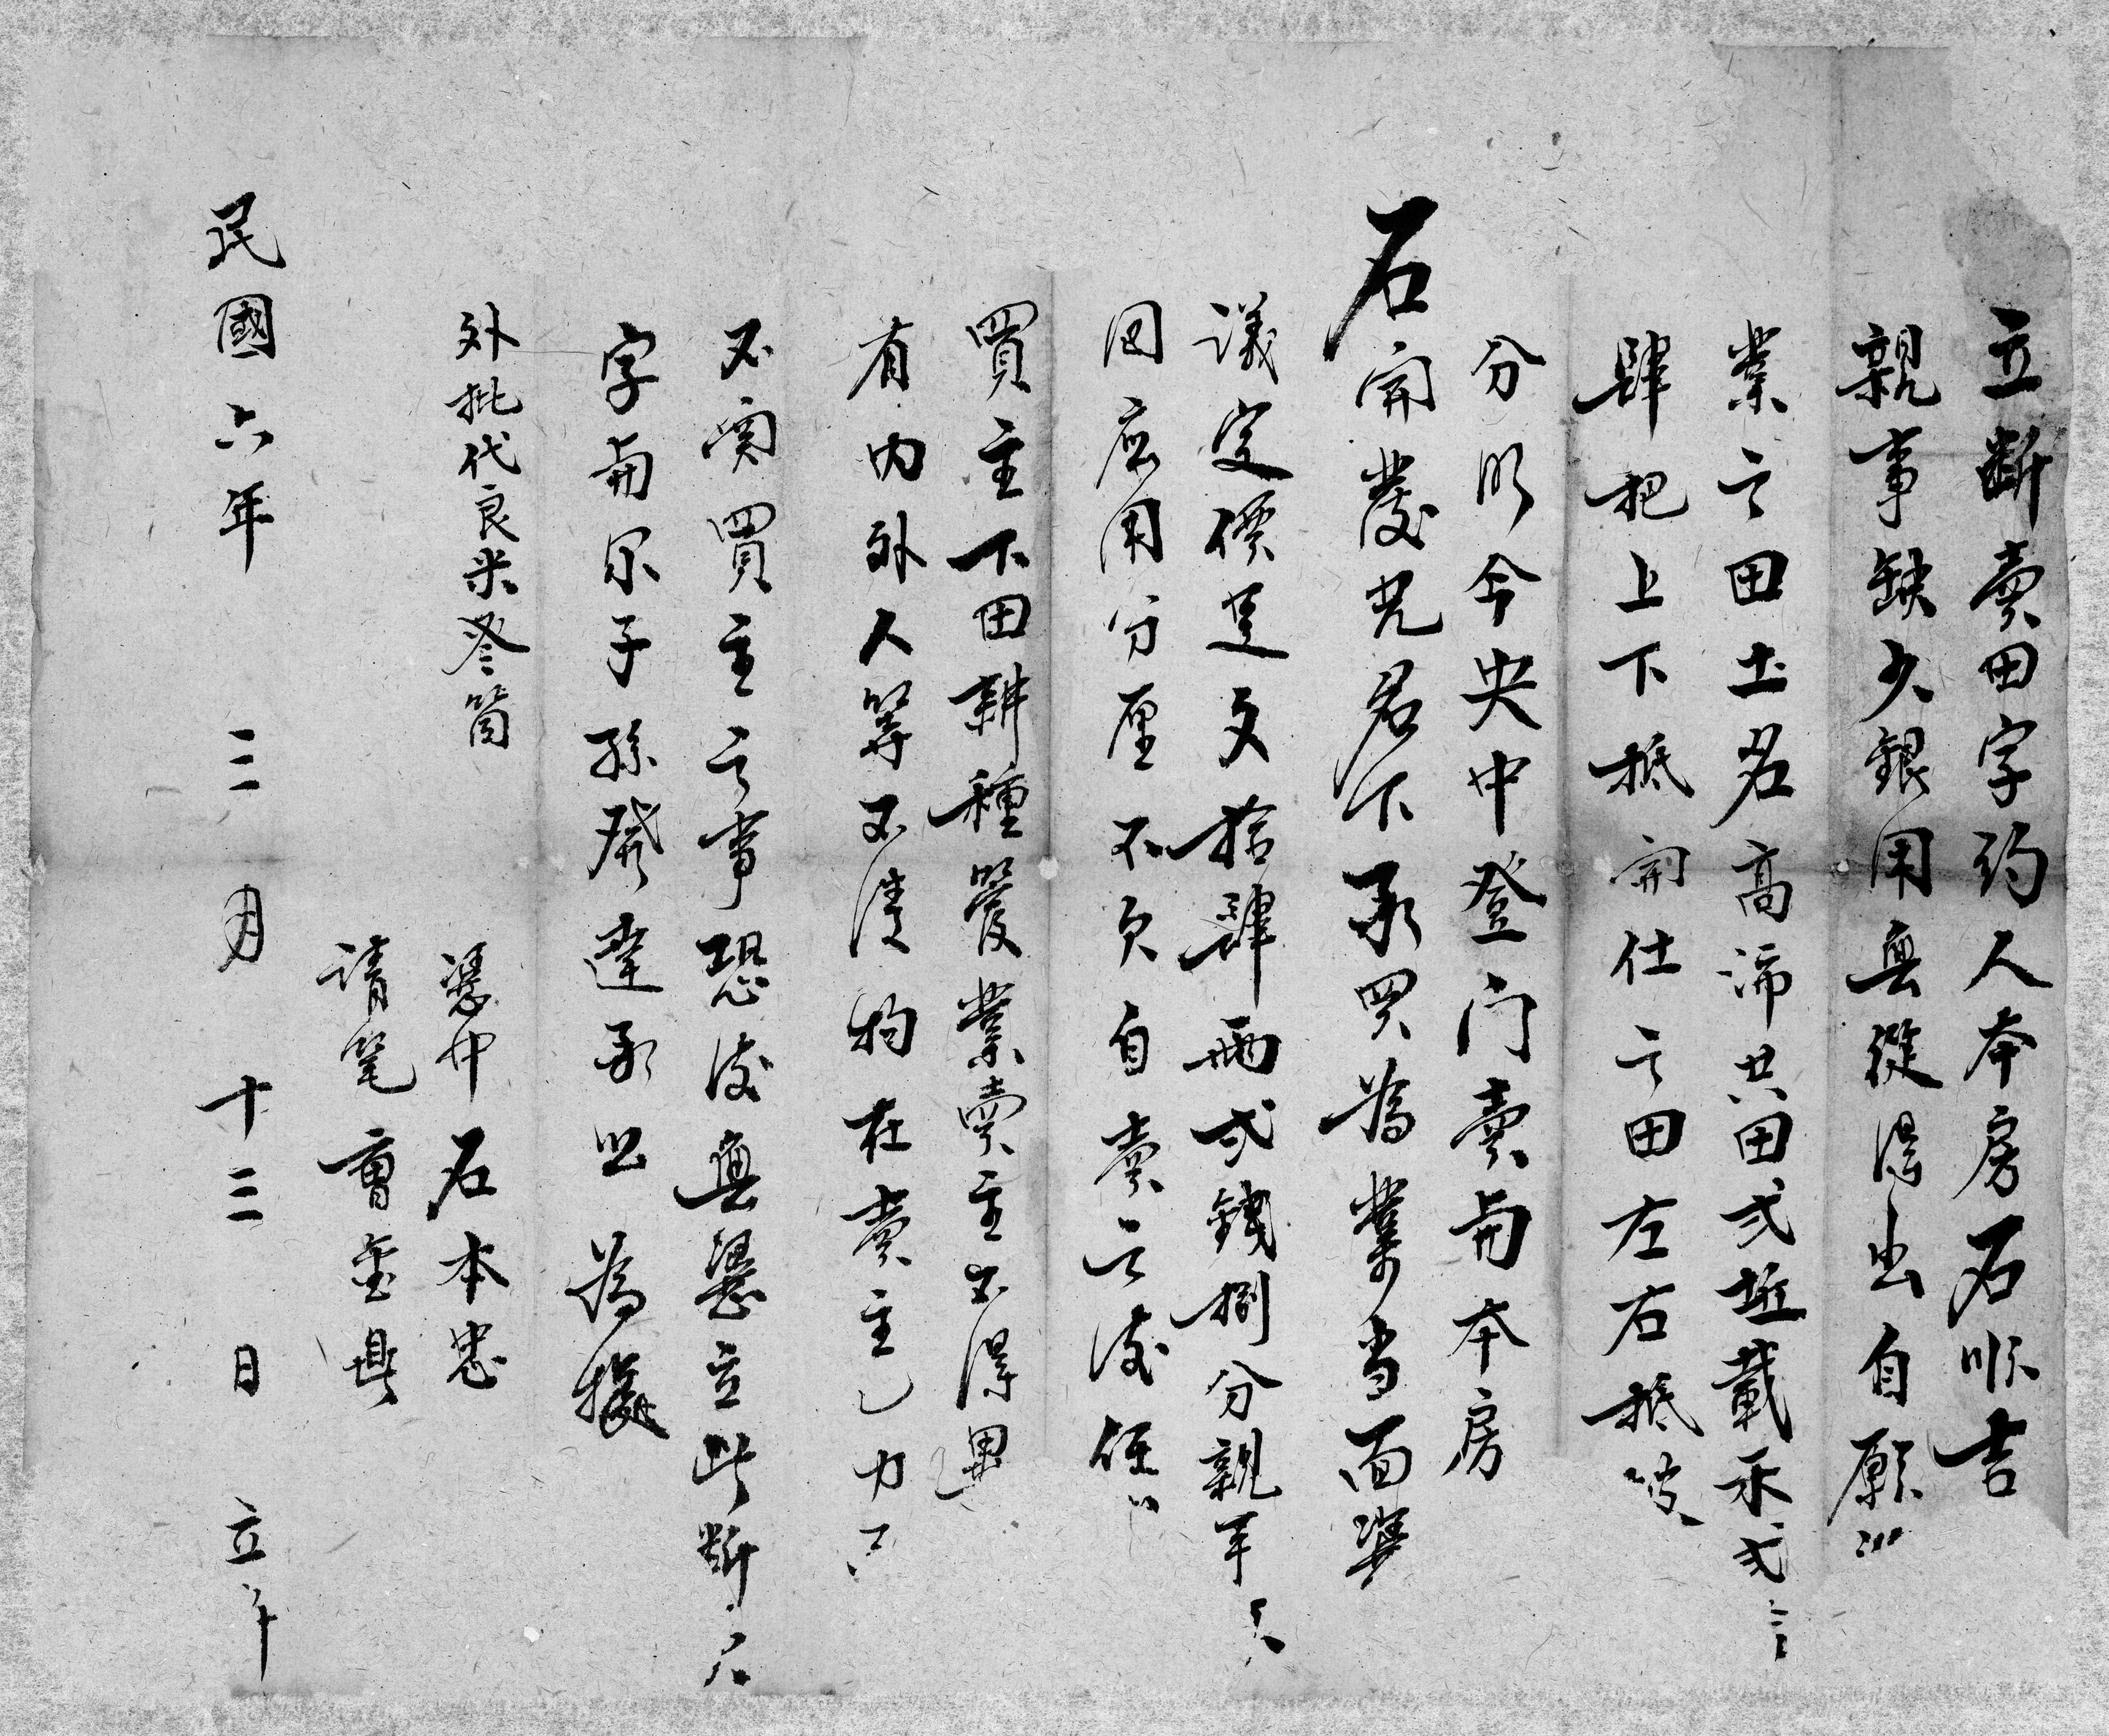 立斷賣田字約人本房石順吉
親事缺少銀用無從得出自願
業之田土名高沛共田弍坵載禾弍
肆把上下抵開仕之田左右抵
分明今央中登门賣與本房
石開發兄君下承買為業当面
議定價足文拾肆兩弍錢捌分親手
回应用分厘不欠自賣之後任
買主下田耕種管業賣主不得異
有内外人等不清物在賣主乙力
不関買主之事恐後無憑立此断
字與尔子孫發達承照為據
外批代良米冬筒
憑中 石本忠
請笔 曹金
民國六年 三月 十三 日 立